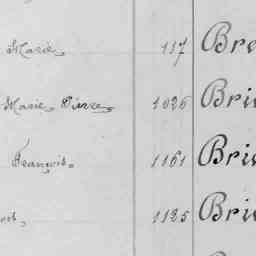 Marie 117 Bre
Marie Pierre 1026 Bri
François 1161 Bri
1185 Bri